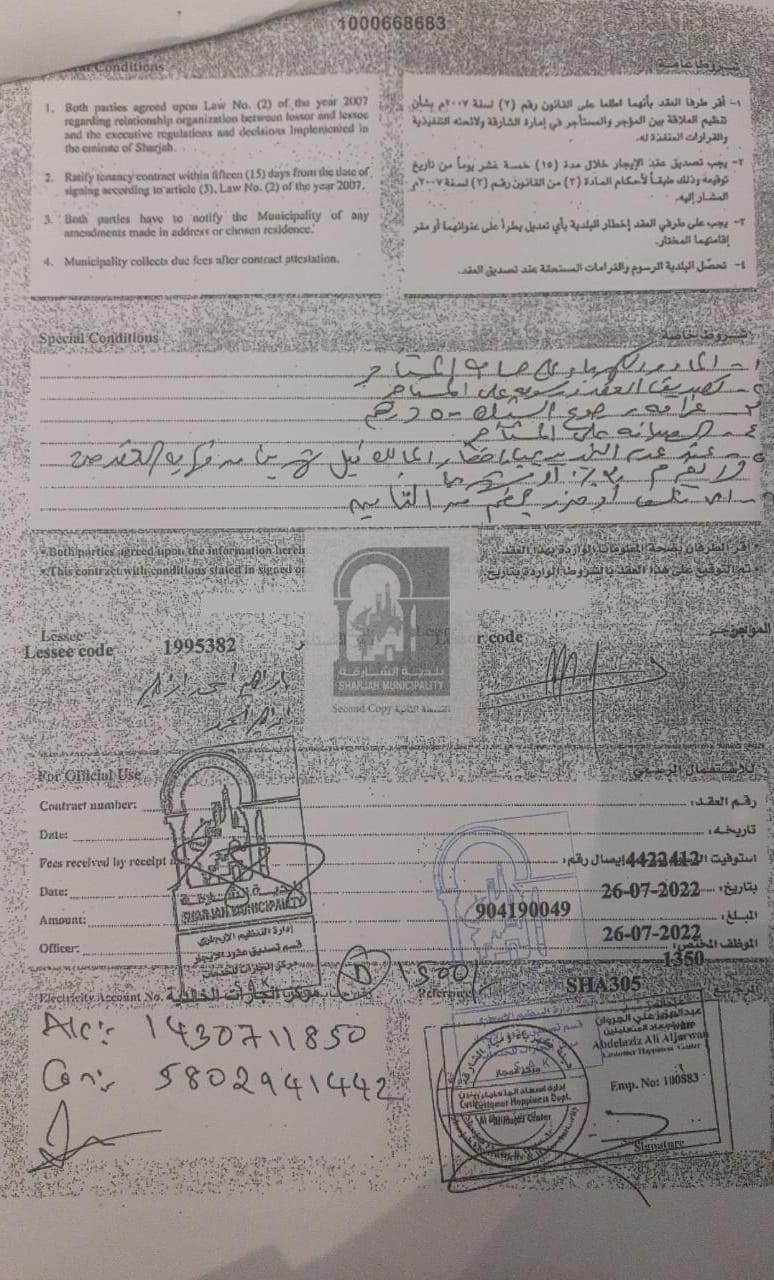 1000668683
Conditions
شروط عامة
1. Both parties agreed upon Law No. (2) of the year 2007
regarding relationship organization between lessor and lessee
and the executive regulations and decisions implemented in
the emirate of Sharjah.
2. Ratify tenancy contract within fifteen (15) days from the date of
signing according to article (3), Law No. (2) of the year 2007.
3. Both parties have to notify the Municipality of any
amendments made in address or chosen residence.
4. Municipality collects due fees after contract attestation.
١- أقر طرفا العقد بأنهما اطلعا على القانون رقم (٢) لسنة ٢٠٠٧م بشأن
تنظيم العلاقة بين المؤجر والمستأجر في إمارة الشارقة ولائحته التنفيذية
والقرارات المنفذة له.
٢- يجب تصديق عقد الإيجار خلال مدة (١٥) خمسة عشر يوماً من تاريخ
توقيعه وذلك طبقاً لأحكام المادة (٣) من القانون رقم (٢) لسنة ٢٠٠٧م
المشار إليه.
٣- يجب على طرفي العقد إخطار البلدية بأي تعديل يطرأ على عنوانهما أو مقر
إقامتهما المختار.
٤- تحصّل البلدية الرسوم والغرامات المستحقة عند تصديق العقد.
Special Conditions
شروط خاصة
٢- تصديق العقد ورسومه على المستأجر
٣- غرامه رجوع الشيك ٥٠٠ درهم
٤- الصيانه على المستأجر
• Both parties agreed upon the information herein
• أقر الطرفان بصحة المعلومات الواردة بهذا العقد.
• This contract with conditions stated in signed on
• تم التوقيع على هذا العقد بالشروط الواردة بتاريخ
بلدية الشارقة
SHARJAH MUNICIPALITY
Second Copy النسخة الثانية
Lessee
Lessee code 1995382
r code
المؤجر
For Official Use
للاستعمال الرسمي
Contract number:
رقم العقد:
Date:
تاريخه:
Fees received by receipt
استوفيت إيصال رقم: 4422412
Date:
بتاريخ: 26-07-2022
904190049
Amount:
المبلغ:
26-07-2022
Officer:
الموظف المختص:
1350
SHARJAH MUNICIPALITY
إدارة التنظيم الإيجاري
قسم تصديق عقود الإيجار
D 1500/
Electricity Account No.
Reference
SHA305
المرجع
A/c:- 1430711850
Con:- 5802941442
عبدالعزيز علي الجروان
Abdelaziz Ali Aljarwan
Customer Happiness Center
Emp. No: 100883
Signature
Customer Happiness Dept.